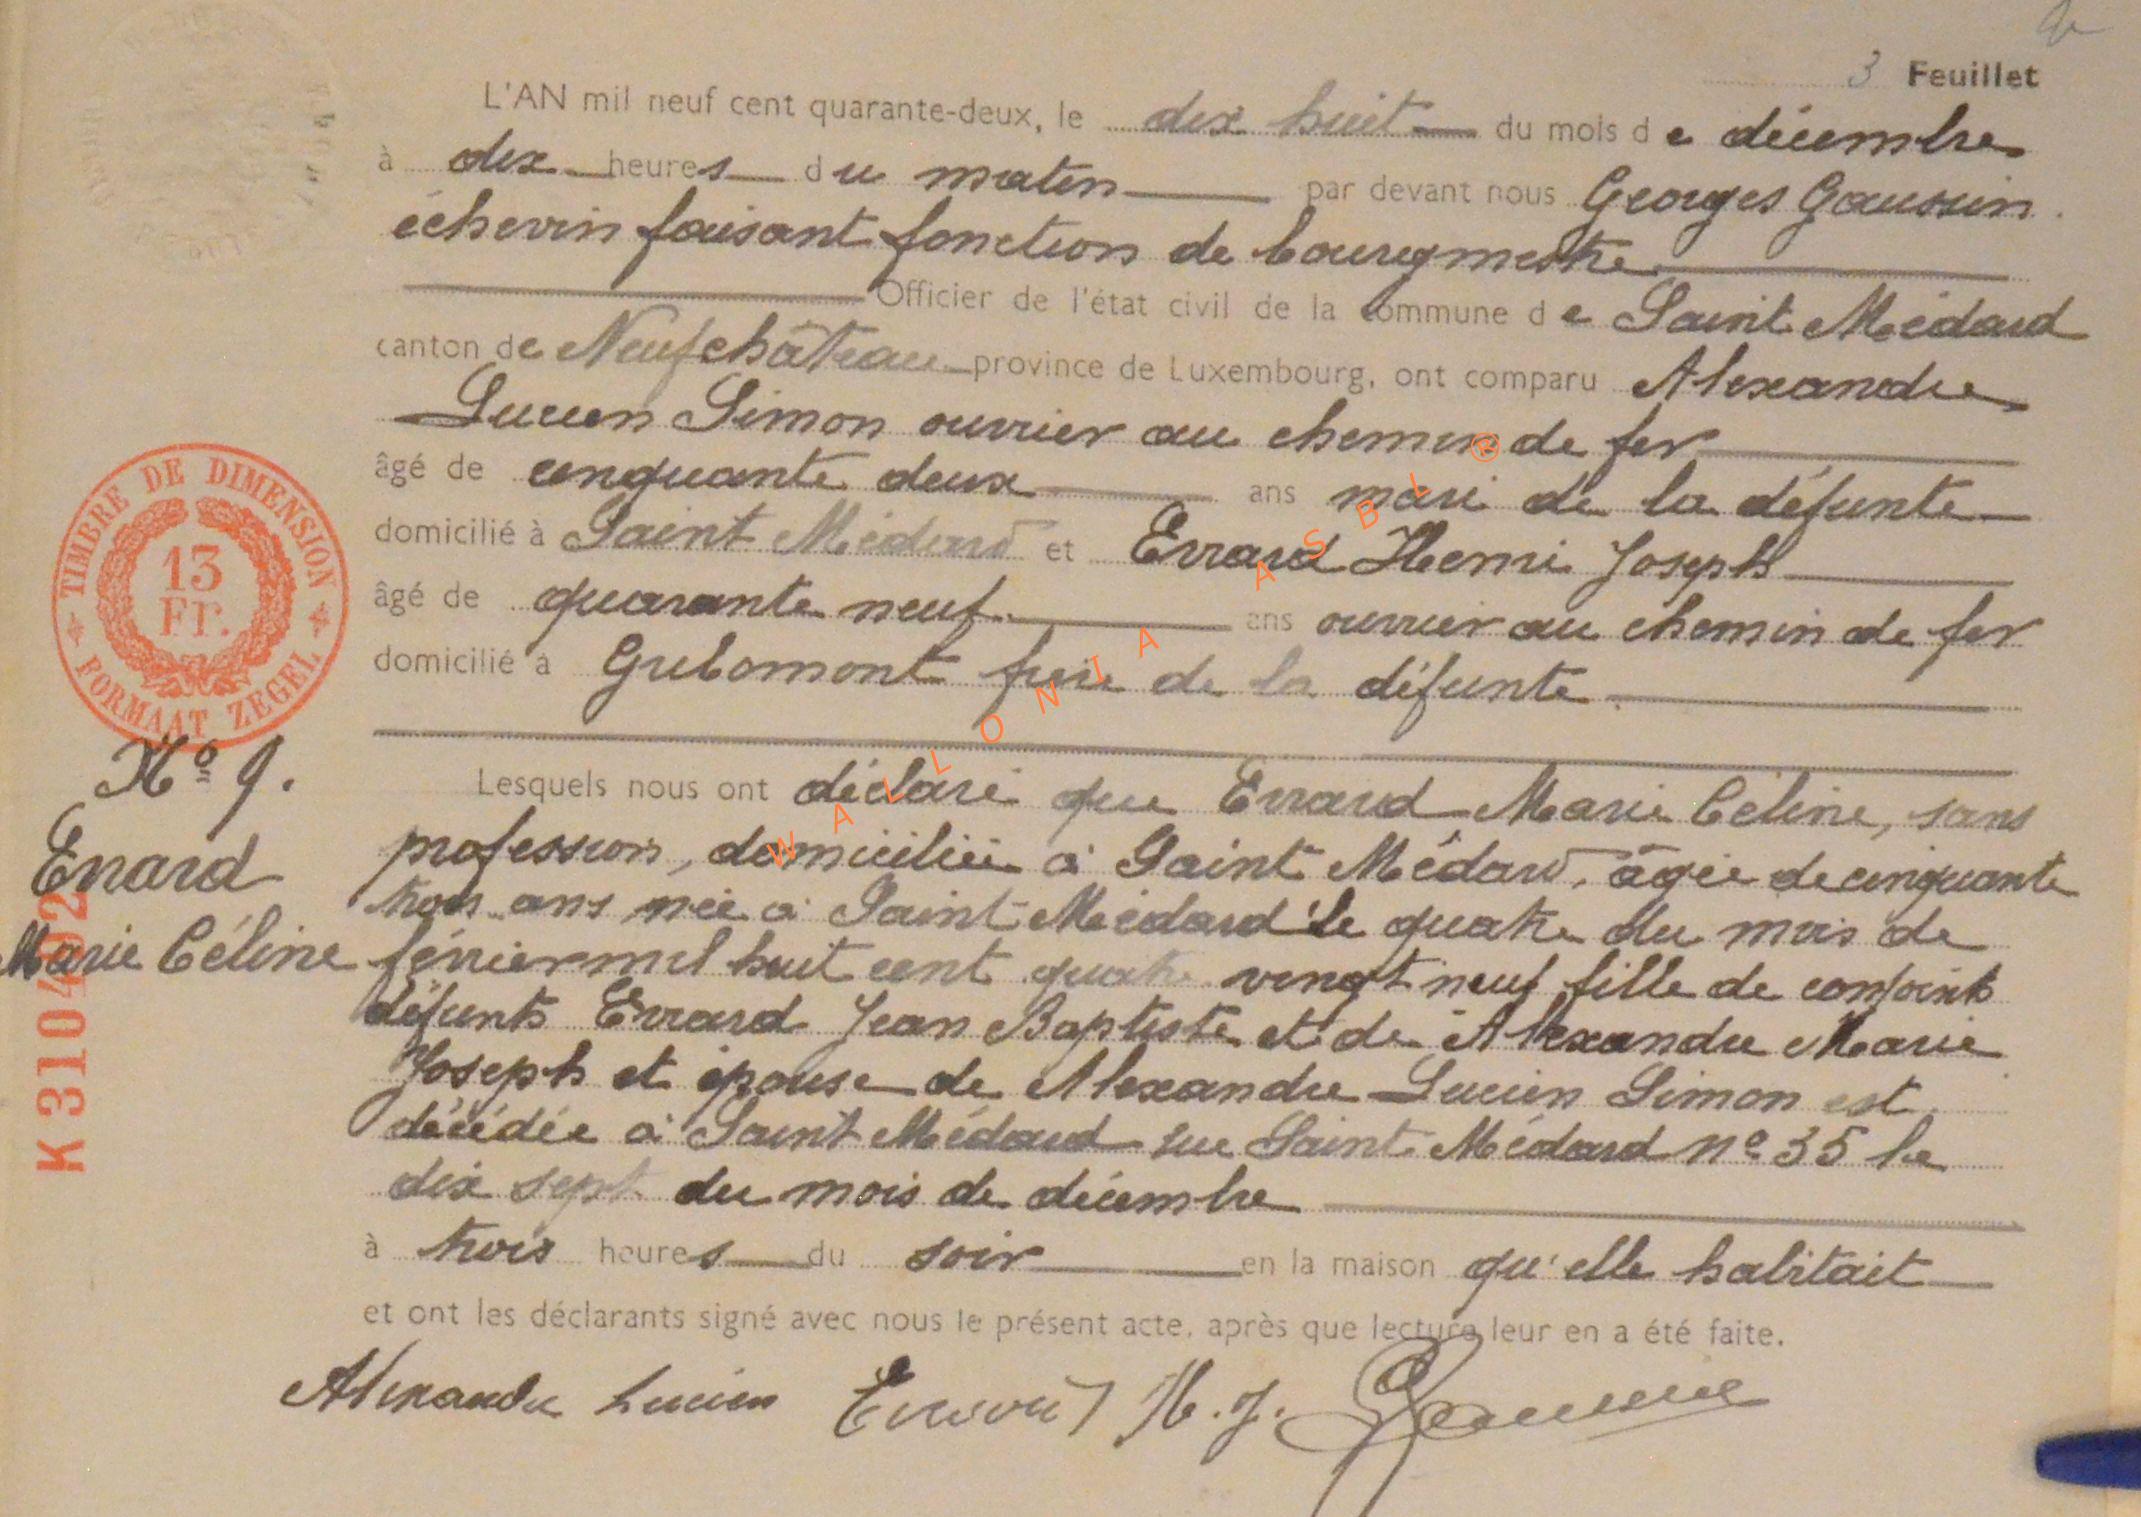 3 Feuillet
L'AN mil neuf cent quarante-deux, le dix huit du mois de décembre
à dix heures du matin par devant nous Georges Gaussin
échevin faisant fonction de bourgmestre
Officier de l'état civil de la commune de Saint Médard
canton de Neufchâteau province de Luxembourg, ont comparu Alexandre
Lucien Simon ouvrier au chemin de fer
âgé de cinquante deux ans mari de la défunte
domicilié à Saint Médard et Errard Henri Joseph
âgé de quarante neuf ans ouvrier au chemin de fer
domicilié à Gribomont frère de la défunte
TIMBRE DE DIMENSION
13
Fr.
FORMAAT ZEGEL
Nº 9.
Errard
Marie Céline
K 310402
Lesquels nous ont déclaré que Errard Marie Céline, sans
profession, domiciliée à Saint Médard, âgée de cinquante
trois ans née à Saint Médard le quatre du mois de
février mil huit cent quatre vingt neuf fille de conjoints
défunts Errard Jean Baptiste et de Alexandre Marie
Joseph et épouse de Alexandre Lucien Simon est
décédée à Saint Médard rue Saint Médard nº 35 le
dix sept du mois de décembre
à trois heures du soir en la maison qu'elle habitait
et ont les déclarants signé avec nous le présent acte, après que lecture leur en a été faite.
Alexandre Lucien Errard H. J. Gaussin
WALLONIA ASBL ®